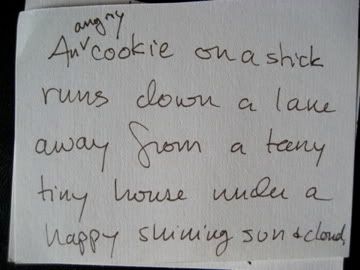 An angry cookie on a stick
runs down a lane
away from a teeny
tiny house under a
happy shining sun & cloud.